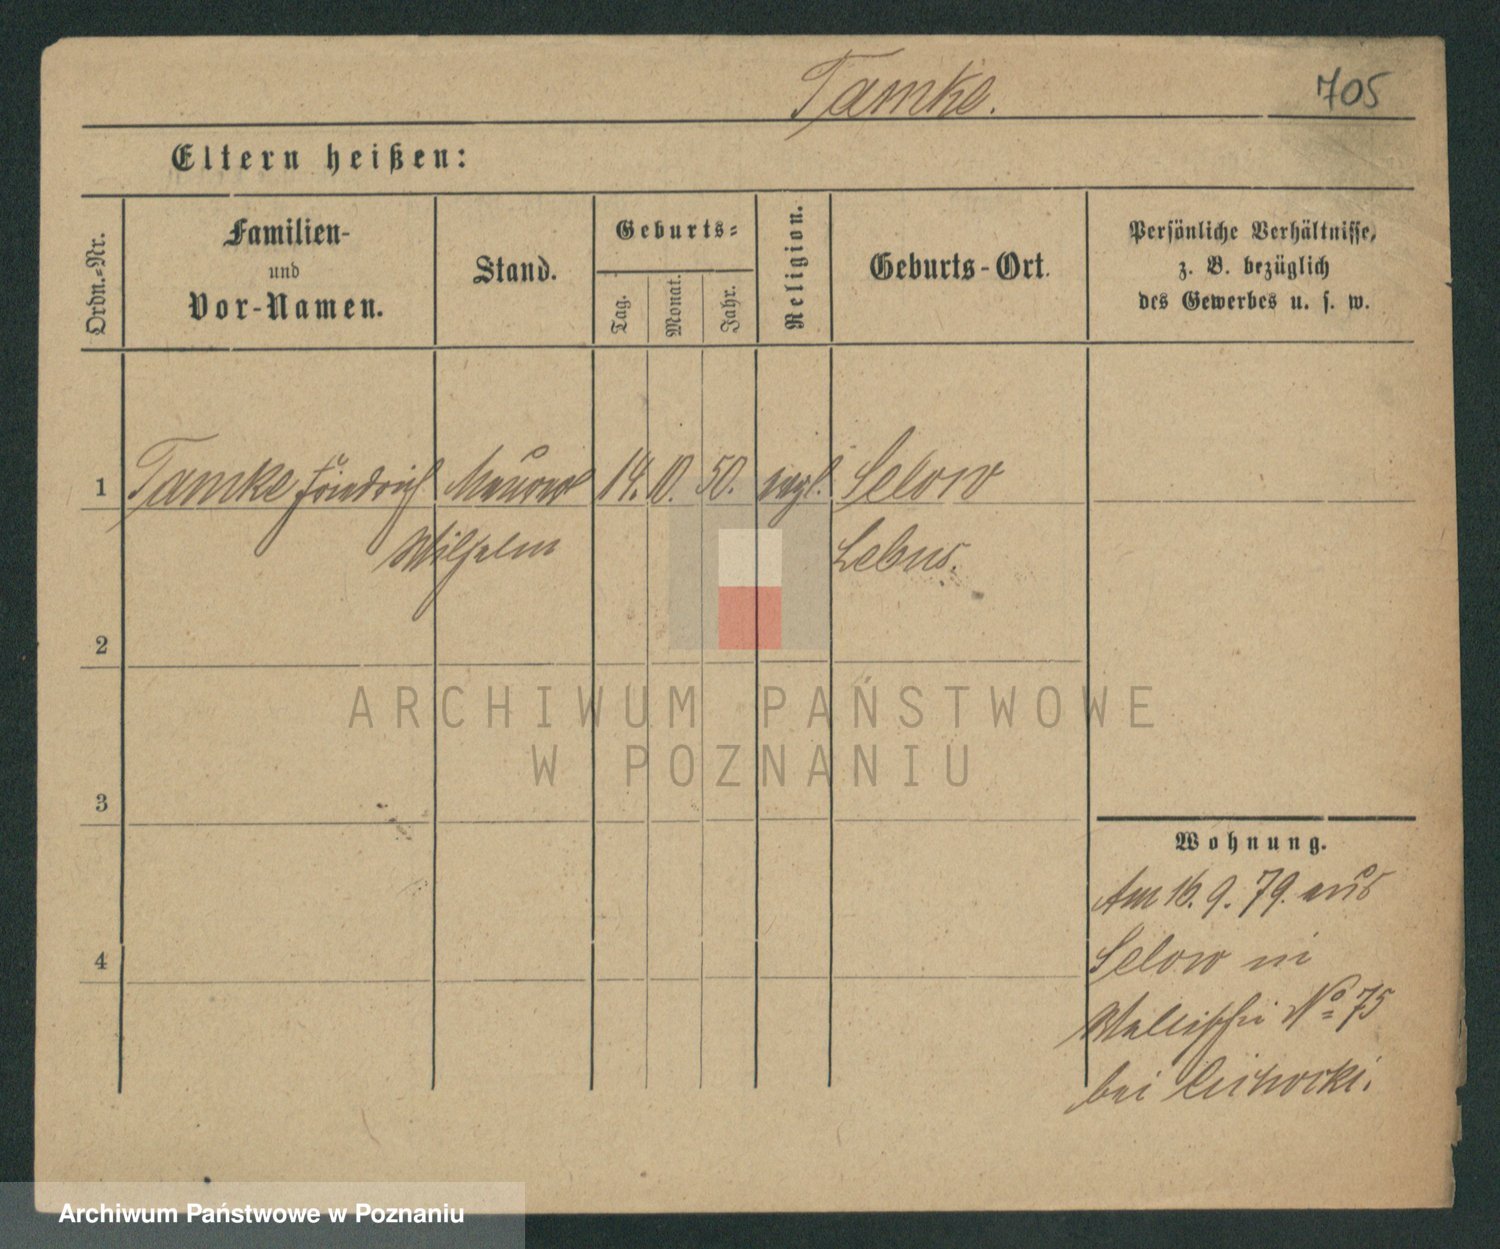 Tamke.
705
Eltern heißen:
Ordn.-Nr.
Familien-
und
Vor-Namen.
Stand.
Geburts-
Tag.
Monat.
Jahr.
Religion.
Geburts-Ort.
Persönliche Verhältnisse,
z. B. bezüglich
des Gewerbes u. s. w.
1 Tamke Friedrich 14. 10. 50. Selow
Wilhelm Lebus.
2
ARCHIWUM PAŃSTWOWE
W POZNANIU
3
Wohnung.
Am 16. 9. 79. aus
Selow in
Wallischei No 75
bei Cichocki.
4
Archiwum Państwowe w Poznaniu